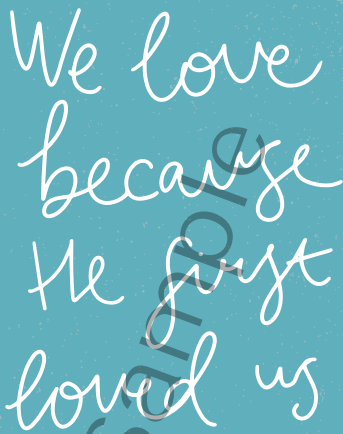 We love
because
He first
loved us
sample